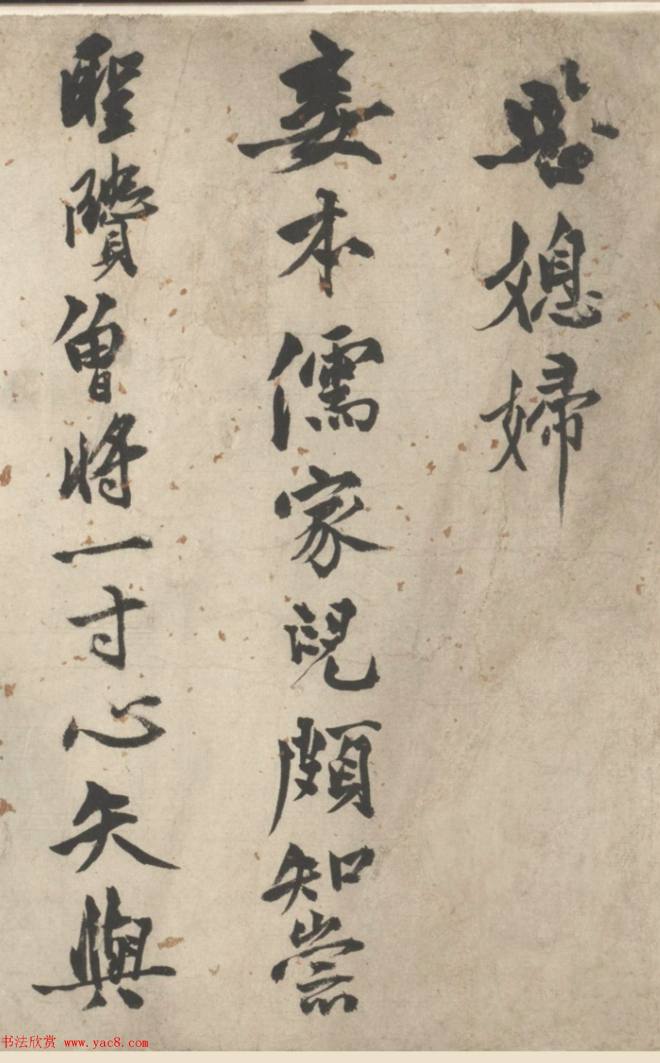 媳婦
妾本儒家兒頗知崇
聖曾將一寸心矢與
书法欣赏 www.yac8.com